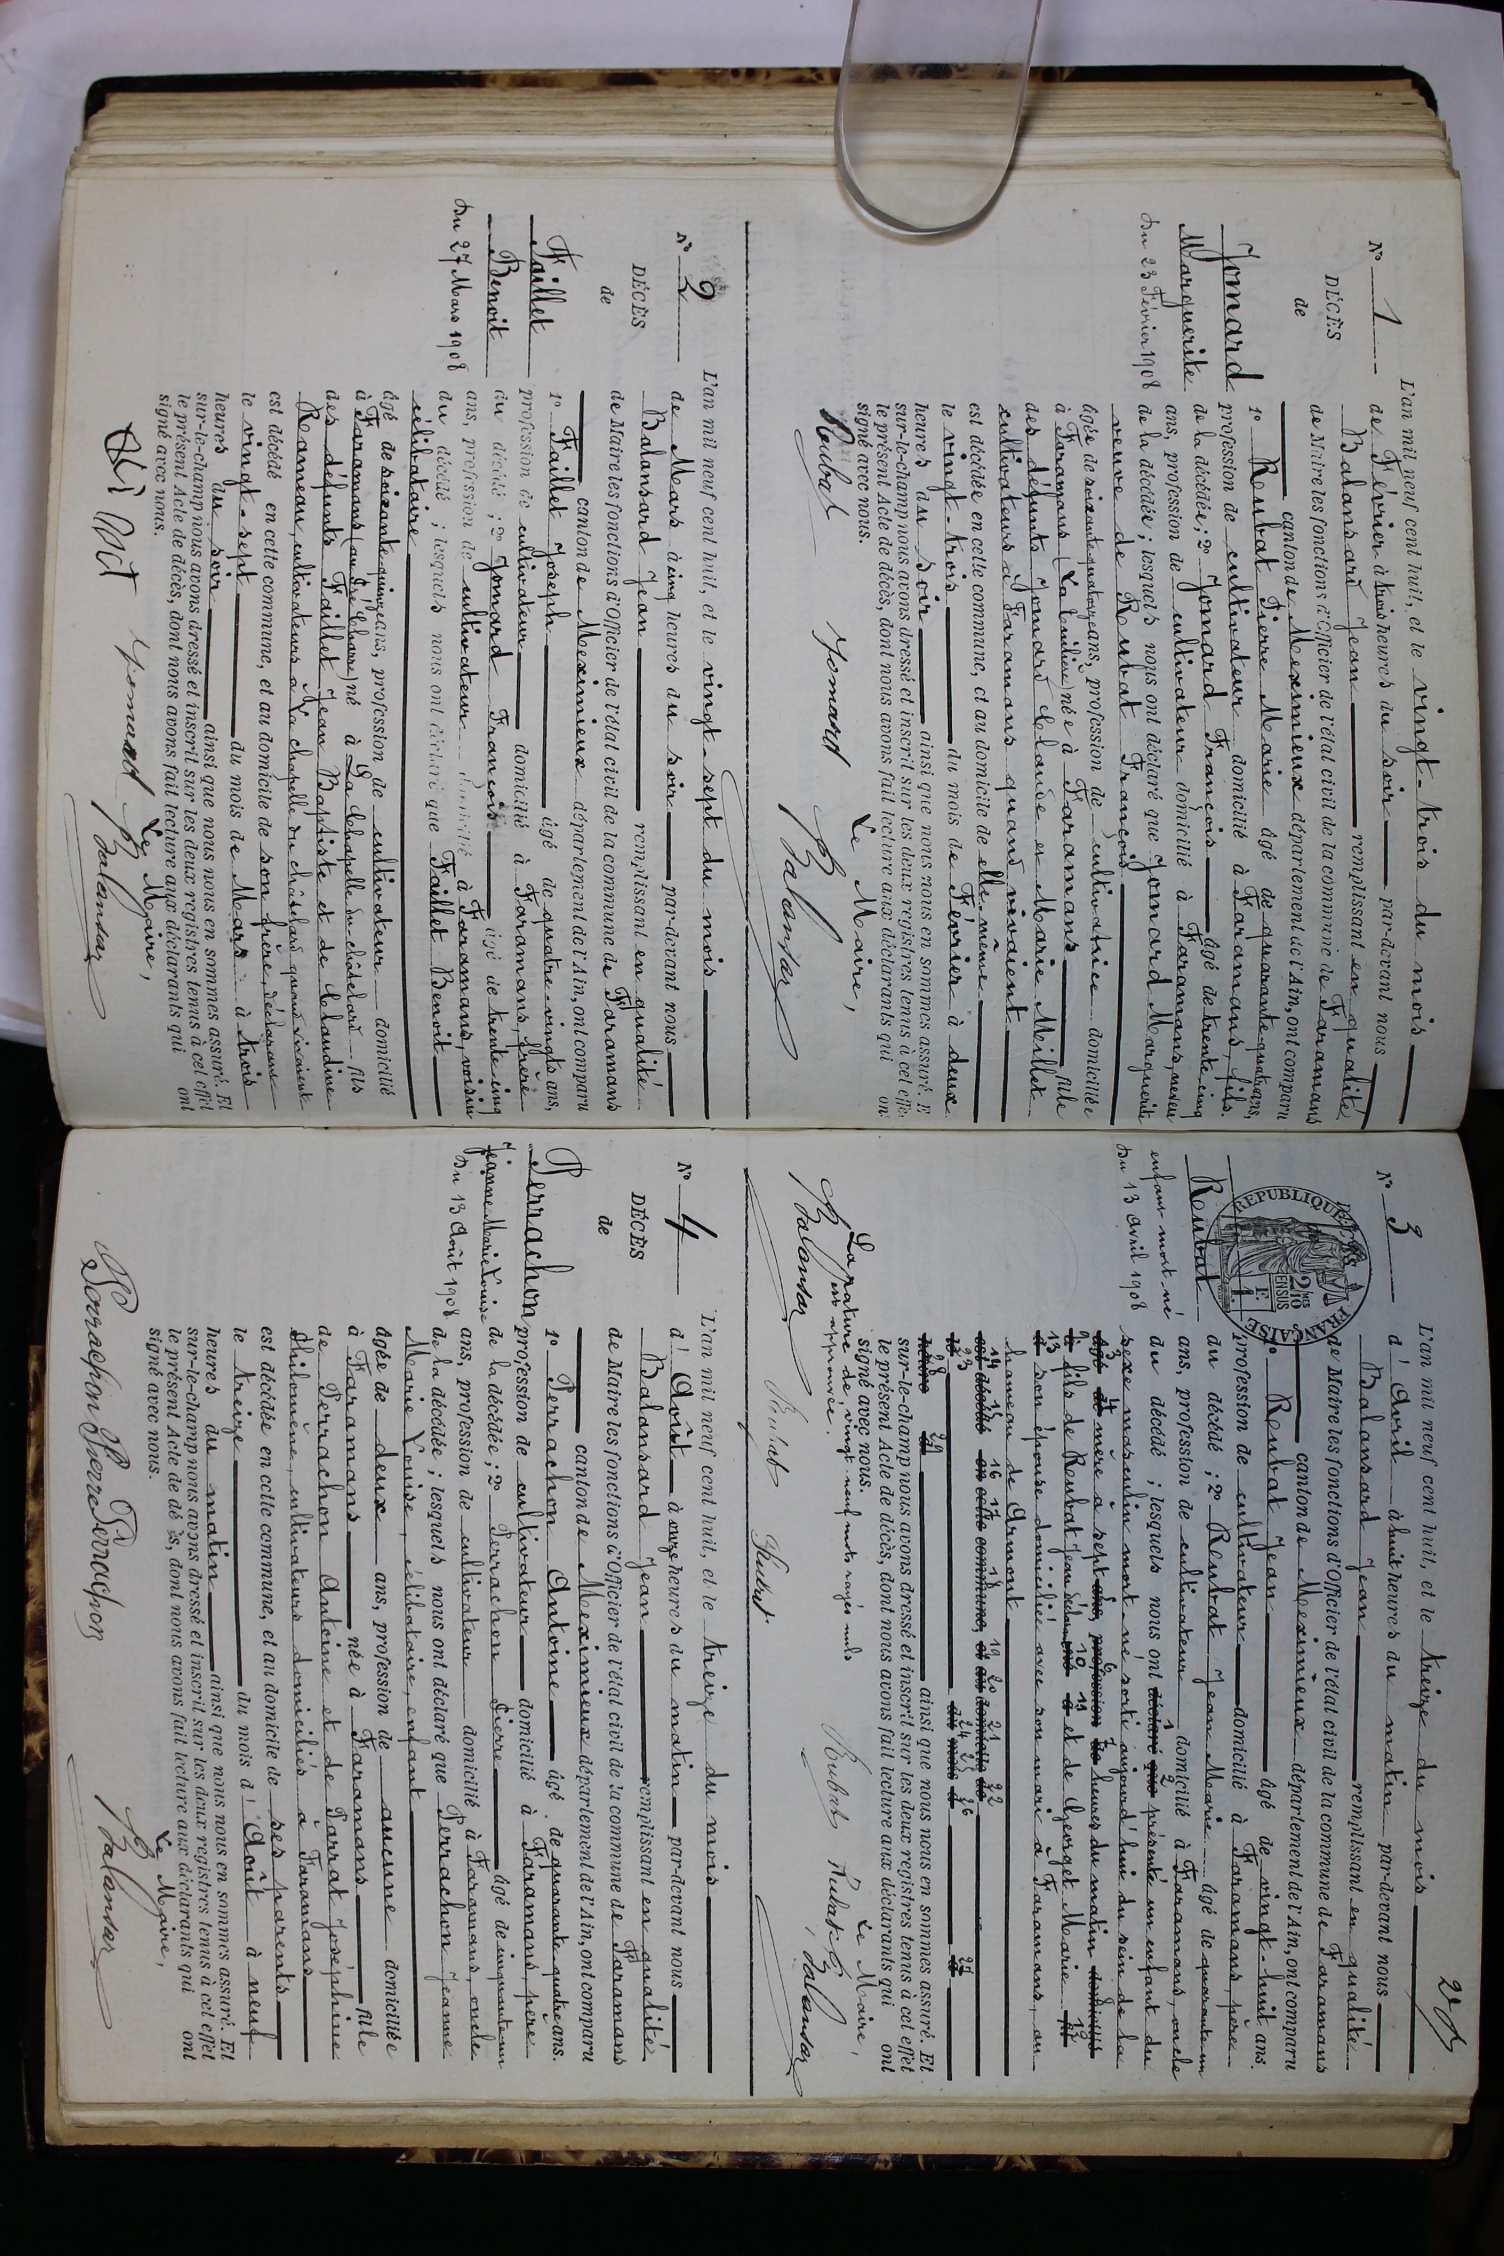 N° 1
DÉCÈS
de
Jomard
Marguerite
Du 23 Février 1908
L'an mil neuf cent huit, et le vingt-trois du mois
de Février à trois heures du soir par-devant nous
Balansard Jean remplissant en qualité
de Maire les fonctions d'Officier de l'état civil de la commune de Faramans
canton de Meximieux département de l'Ain, ont comparu
1° Rubat Pierre Marie âgé de quarante-quatre ans,
profession de cultivateur domicilié à Faramans, fils
de la décédée; 2° Jomard François âgé de trente-cinq
ans, profession de cultivateur domicilié à Faramans, neveu
de la décédée; lesquels nous ont déclaré que Jomard Marguerite
veuve de Rubat François
âgée de soixante quatorze ans, profession de cultivatrice domiciliée
à Faramans née à Faramans fille
des défunts Jomard Claude et Marie Millet
cultivateurs à Faramans quand vivaient
est décédée en cette commune, et au domicile de elle-même
le vingt-trois du mois de Février à deux
heures du soir ainsi que nous nous en sommes assuré. E
sur-le-champ nous avons dressé et inscrit sur les deux registres tenus à cet effet
le présent Acte de décès, dont nous avons fait lecture aux déclarants qui on
signé avec nous.
Le Maire,
Rubat Jomard Balansar
N° 2
DÉCÈS
de
Faillet
Benoit
Du 27 Mars 1908
L'an mil neuf cent huit, et le vingt-sept du mois
de Mars à cinq heures du soir par-devant nous
Balansard Jean remplissant en qualité
de Maire les fonctions d'Officier de l'état civil de la commune de Faramans
canton de Meximieux département de l'Ain, ont comparu
1° Faillet Joseph âgé de quatre-vingts ans,
profession de cultivateur domicilié à Faramans, frère
du décédé; 2° Jomard François âgé de trente-cinq
ans, profession de cultivateur domicilié à Faramans, voisin
du décédé; lesquels nous ont déclaré que Faillet Benoit
célibataire
âgé de soixante-quinze ans, profession de cultivateur domicilié
à Faramans né à La Chapelle du châtelard fils
des défunts Faillet Jean Baptiste et de Claudine
Rameau, cultivateurs à La chapelle du châtelard quand vivaient
est décédé en cette commune, et au domicile de son frère, déclarant
le vingt-sept du mois de Mars à trois
heures du soir ainsi que nous nous en sommes assuré. Et
sur-le-champ nous avons dressé et inscrit sur les deux registres tenus à cet effet
le présent Acte de décès, dont nous avons fait lecture aux déclarants qui ont
signé avec nous.
Le Maire,
Jomard Balansar
25
N° 3
RÉPUBLIQUE FRANÇAISE
Rubat
enfant mort-né
Du 13 Avril 1908
L'an mil neuf cent huit, et le treize du mois
d'Avril à huit heures du matin par-devant nous
Balansard Jean remplissant en qualité
de Maire les fonctions d'Officier de l'état civil de la commune de Faramans
canton de Meximieux département de l'Ain, ont comparu
1° Rubat Jean âgé de vingt-huit ans.
profession de cultivateur domicilié à Faramans, père
du décédé; 2° Rubat Jean Marie âgé de quarante-un
ans, profession de cultivateur domicilié à Faramans, oncle
du décédé; lesquels nous ont déclaré que présenté un enfant du
sexe masculin mort-né sorti aujourd'hui du sein de la
âgé de mère à sept ans, profession de heures du matin domicilié
à fils de Rubat Jean né à et de Georget Marie
à son épouse domiciliée avec son mari à Faramans, au
hameau de Armont
est décédé en cette commune, et au domicile de
le du mois d à
heures d ainsi que nous nous en sommes assuré. Et
sur-le-champ nous avons dressé et inscrit sur les deux registres tenus à cet effet
le présent Acte de décès, dont nous avons fait lecture aux déclarants qui ont
signé avec nous.
La rature de vingt-neuf mots rayés nuls
est approuvée.
Le Maire,
Balansar Rubat Rubat Rubat Rubat Balansar
N° 4
DÉCÈS
de
Perrachon
Jeanne Marie Louise
Du 13 Août 1908
L'an mil neuf cent huit, et le treize du mois
d'Août à onze heures du matin par-devant nous
Balansard Jean remplissant en qualité
de Maire les fonctions d'Officier de l'état civil de la commune de Faramans
canton de Meximieux département de l'Ain, ont comparu
1° Perrachon Antoine âgé de quarante-quatre ans.
profession de cultivateur domicilié à Faramans, père
de la décédée; 2° Perrachon Pierre âgé de cinquante-un
ans, profession de cultivateur domicilié à Faramans, oncle
de la décédée; lesquels nous ont déclaré que Perrachon Jeanne
Marie Louise, célibataire, enfant
âgée de deux ans, profession de aucune domiciliée
à Faramans née à Faramans fille
de Perrachon Antoine et de Parrat Joséphine
Philomène, cultivateurs domiciliés à Faramans
est décédée en cette commune, et au domicile de ses parents
le treize du mois d'Août à neuf
heures du matin ainsi que nous nous en sommes assuré. Et
sur-le-champ nous avons dressé et inscrit sur les deux registres tenus à cet effet
le présent Acte de décès, dont nous avons fait lecture aux déclarants qui ont
signé avec nous.
Le Maire,
Perrachon Pierre Perrachon Balansar